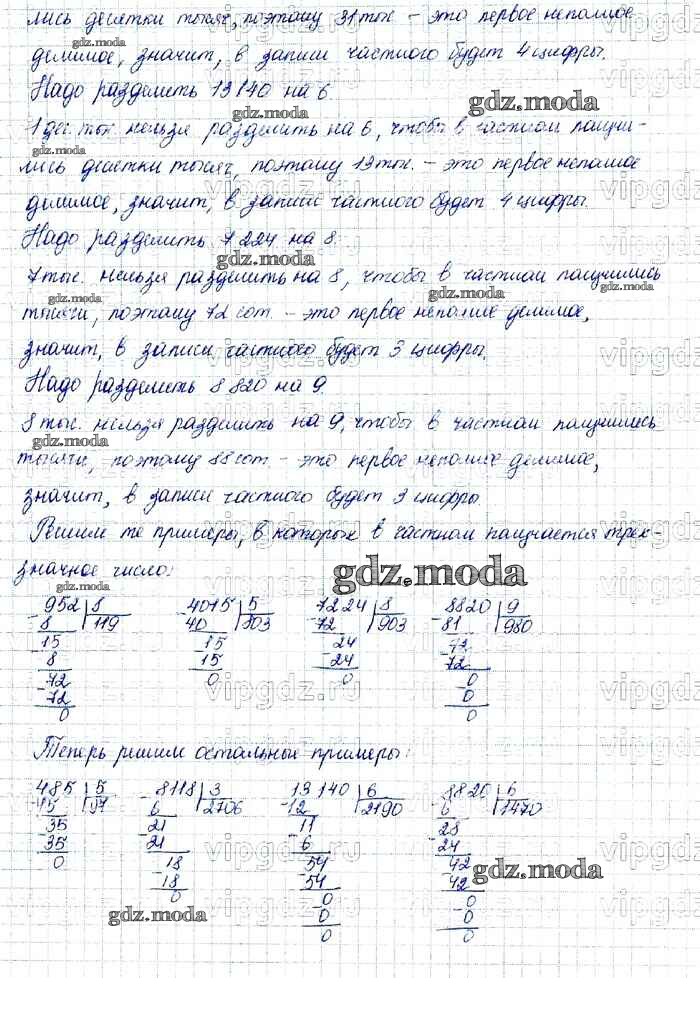 лись десятки тысяч, поэтому 31 тыс. – это первое неполное
делимое, значит, в записи частного будет 4 цифры.
Надо разделить 13140 на 6.
1 дес. тыс. нельзя разделить на 6, чтобы в частном получи-
лись десятки тысяч, поэтому 13 тыс. – это первое неполное
делимое, значит, в записи частного будет 4 цифры.
Надо разделить 7224 на 8.
7 тыс. нельзя разделить на 8, чтобы в частном получились
тысячи, поэтому 72 сот. – это первое неполное делимое,
значит, в записи частного будет 3 цифры.
Надо разделить 8820 на 9.
8 тыс. нельзя разделить на 9, чтобы в частном получились
тысячи, поэтому 88 сот. – это первое неполное делимое,
значит, в записи частного будет 3 цифры.
Решим те примеры, в которых в частном получается трех-
значное число:
952 8 4015 5 7224 8 8820 9
8 119 40 803 72 903 81 980
15 15 24 72
8 15 24 72
72 0 0 0
72 0
0 0
Теперь решим остальные примеры:
485 5 8118 3 13140 6 8820 6
45 97 6 2706 12 2190 6 1470
35 21 11 28
35 21 6 24
0 18 54 42
18 54 42
0 0 0
0 0
0 0
gdz.moda
vipgdz.ru